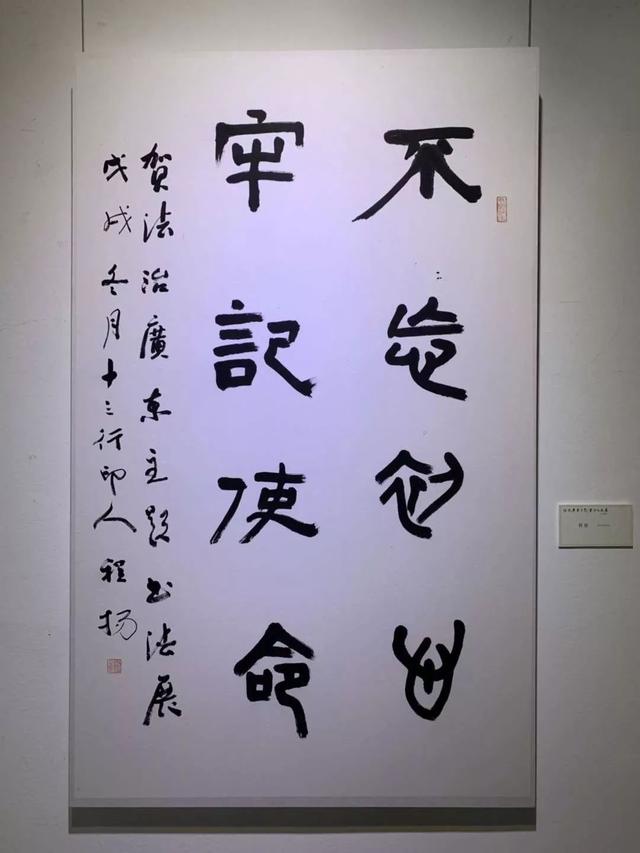 不忘初心
牢記使命
賀法治廣東主題书法展
戊戌冬月十三行印人程扬